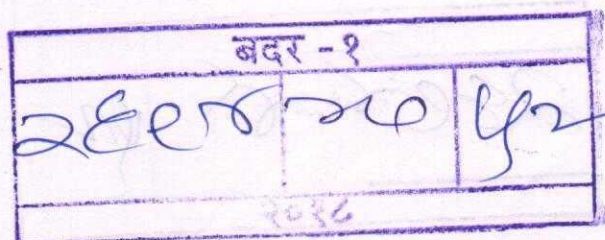 बदर - १
२६९४ २० ५२
२०१८